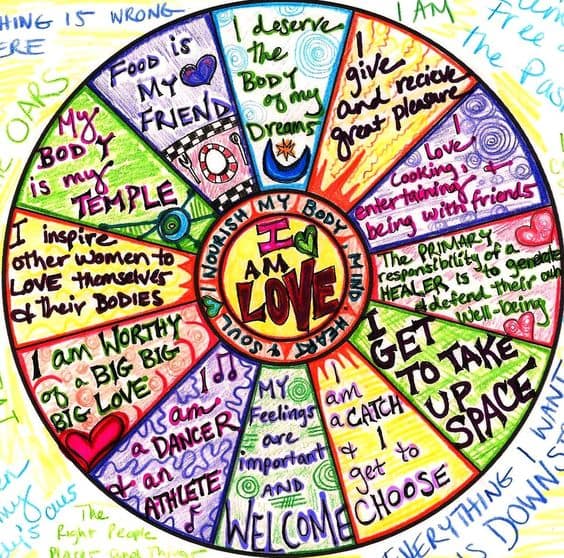 I AM
LOVE
I NOURISH MY BODY, MIND, HEART & SOUL
I deserve
the
BODY
of my
Dreams
I
give
and recieve
great pleasure
I
Love
Cooking,
entertaining, +
being with friends
The PRIMARY
responsibility of a
HEALER is to generate
& defend their own
Well-Being
I
GET
TO TAKE
UP
SPACE
I
am
a CATCH
& I
get to
CHOOSE
MY
Feelings
are
important
AND
WELCOME
I
am
a DANCER
& an
ATHLETE
I am WORTHY
of a BIG BIG
BIG LOVE
I inspire
other women to
LOVE themselves
& their BODIES
My
BODY
is my
TEMPLE
FOOD is
MY
FRIEND
HING IS WRONG
ERE
I AM
Free
the
Past
OARS
The
Right People
Places and Things
EVERYTHING I WANT
IS DOWNST